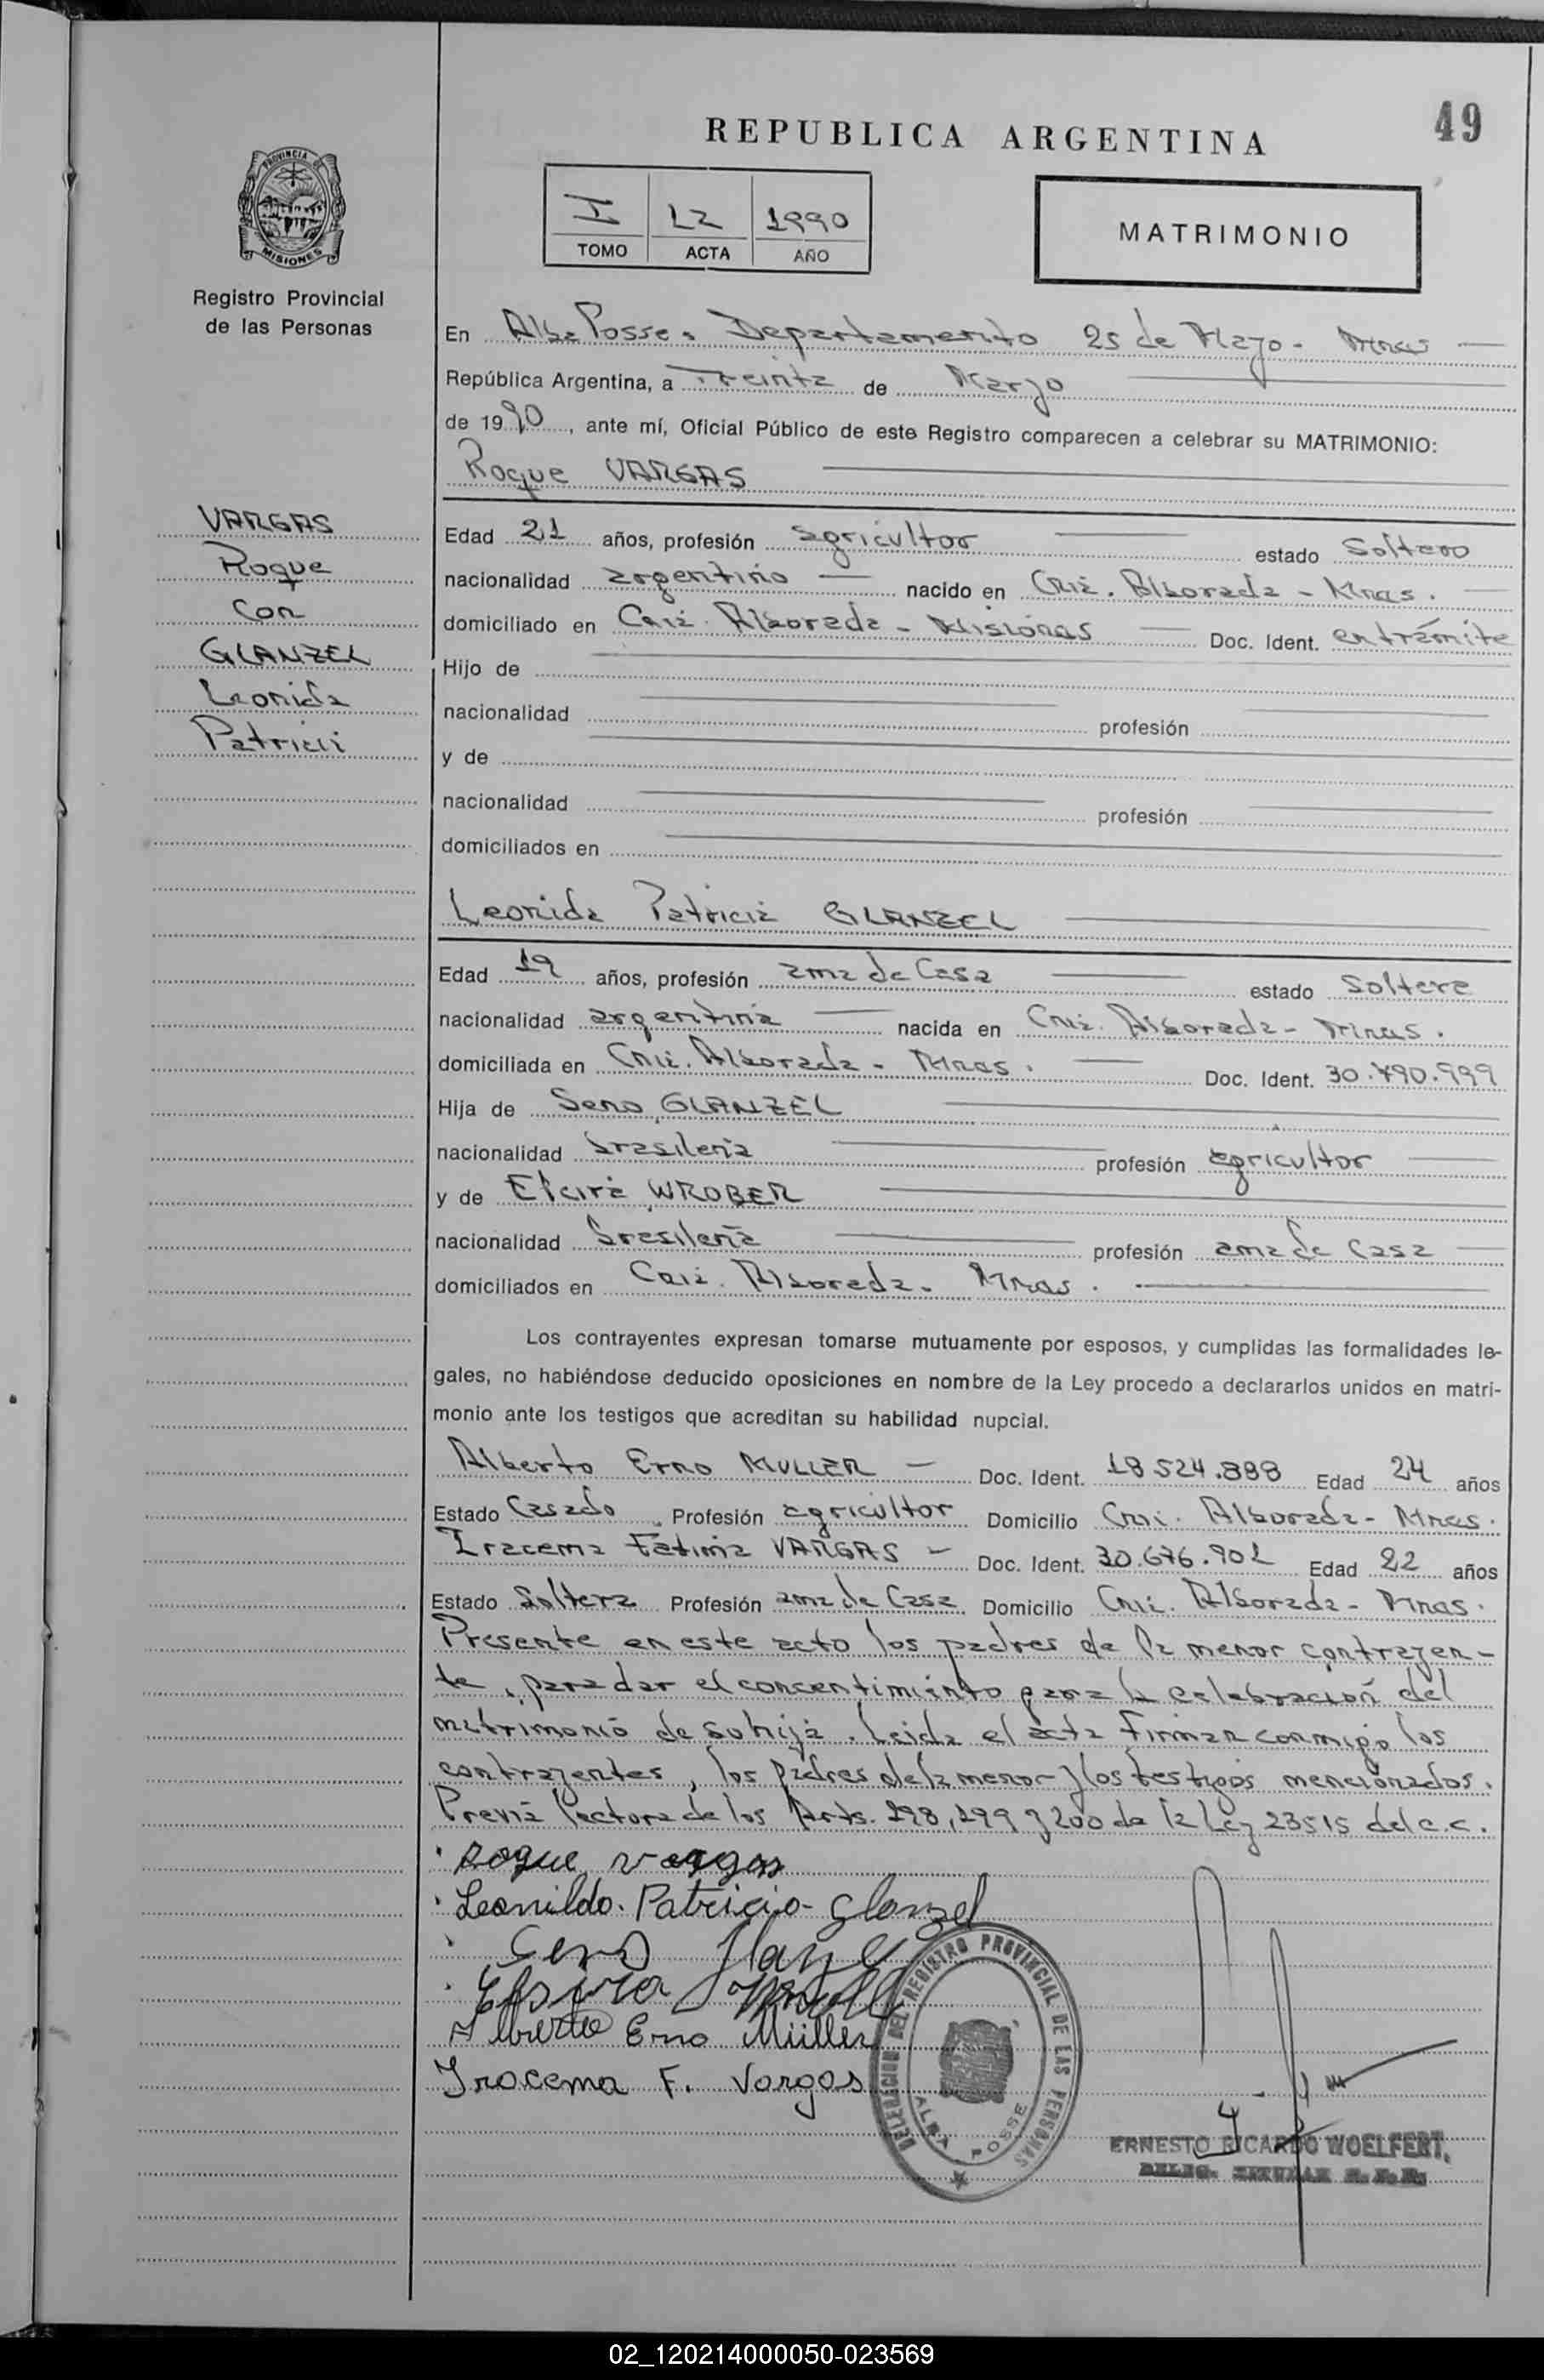 49
REPUBLICA ARGENTINA
I 12 1990
TOMO ACTA AÑO
MATRIMONIO
PROVINCIA DE
MISIONES
Registro Provincial
de las Personas
En Alba Posse. Departamento 25 de Mayo - Mnes
República Argentina, a Treinta de Marzo
de 1990, ante mí, Oficial Público de este Registro comparecen a celebrar su MATRIMONIO:
Roque VARGAS
VARGAS
Roque
Con
GLANZEL
Leonida
Patricia
Edad 21 años, profesión agricultor estado Soltero
nacionalidad argentino nacido en Cnia. Alborada - Mnes.
domiciliado en Cnia. Alborada - Misiones Doc. Ident. en trámite
Hijo de
nacionalidad profesión
y de
nacionalidad profesión
domiciliados en
Leonida Patricia GLANZEL
Edad 19 años, profesión ama de Casa estado Soltera
nacionalidad argentina nacida en Cnia. Alborada - Mnes.
domiciliada en Cnia. Alborada - Mnes. Doc. Ident. 30.790.999
Hija de Seno GLANZEL
nacionalidad brasileña profesión agricultor
y de WROBER
nacionalidad brasileña profesión ama de Casa
domiciliados en Cnia. Alborada. Mnes.
Los contrayentes expresan tomarse mutuamente por esposos, y cumplidas las formalidades le-
gales, no habiéndose deducido oposiciones en nombre de la Ley procedo a declararlos unidos en matri-
monio ante los testigos que acreditan su habilidad nupcial.
Alberto Erno MULLER - Doc. Ident. 18.524.888 Edad 24 años
Estado Casado Profesión agricultor Domicilio Cnia. Alborada - Mnes.
Iracema Fatima VARGAS - Doc. Ident. 30.676.902 Edad 22 años
Estado Soltera Profesión ama de Casa Domicilio Cnia. Alborada - Mnes.
Presente en este acto los padres de la menor contrayen-
te, para dar el concentimiento para la celebración del
matrimonio de su hija. Leida el acta firman conmigo los
contrayentes, los padres de la menor y los testigos mencionados.
Previa lectora de los Arts. 198, 199 y 200 de la Ley 23515 del c.c.
Roque Vargas
Leonilda. Patricia Glanzel
Seno Glanzel
Alberto Erno Müller
Iracema F. Vargas
DELEGACION DEL REGISTRO PROVINCIAL DE LAS PERSONAS
ALBA POSSE
ERNESTO RICARDO WOELFERT.
DELEG. TITULAR R.P.P.
02_120214000050-023569